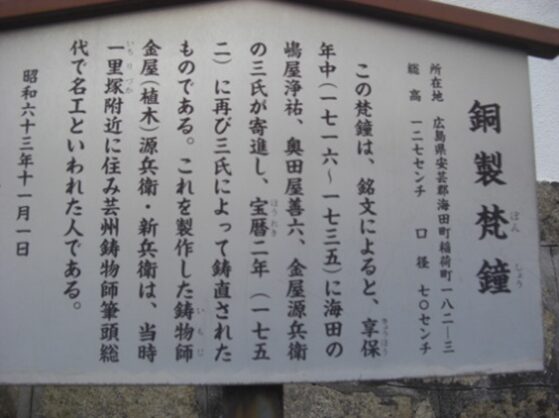 銅製梵鐘
ぼん しょう
所在地 広島県安芸郡海田町稲荷町一八二―三
総高 一二七センチ 口径 七〇センチ
この梵鐘は、銘文によると、享保
きょうほう
年中(一七一六〜一七三五)に海田の
嶋屋浄祐、奥田屋善六、金屋源兵衛
の三氏が寄進し、宝暦二年(一七五
ほうれき
二)に再び三氏によって鋳直された
ものである。これを製作した鋳物師
いもじ
金屋(植木)源兵衛・新兵衛は、当時
一里塚附近に住み芸州鋳物師筆頭総
いちりづか
代で名工といわれた人である。
昭和六十三年十一月一日